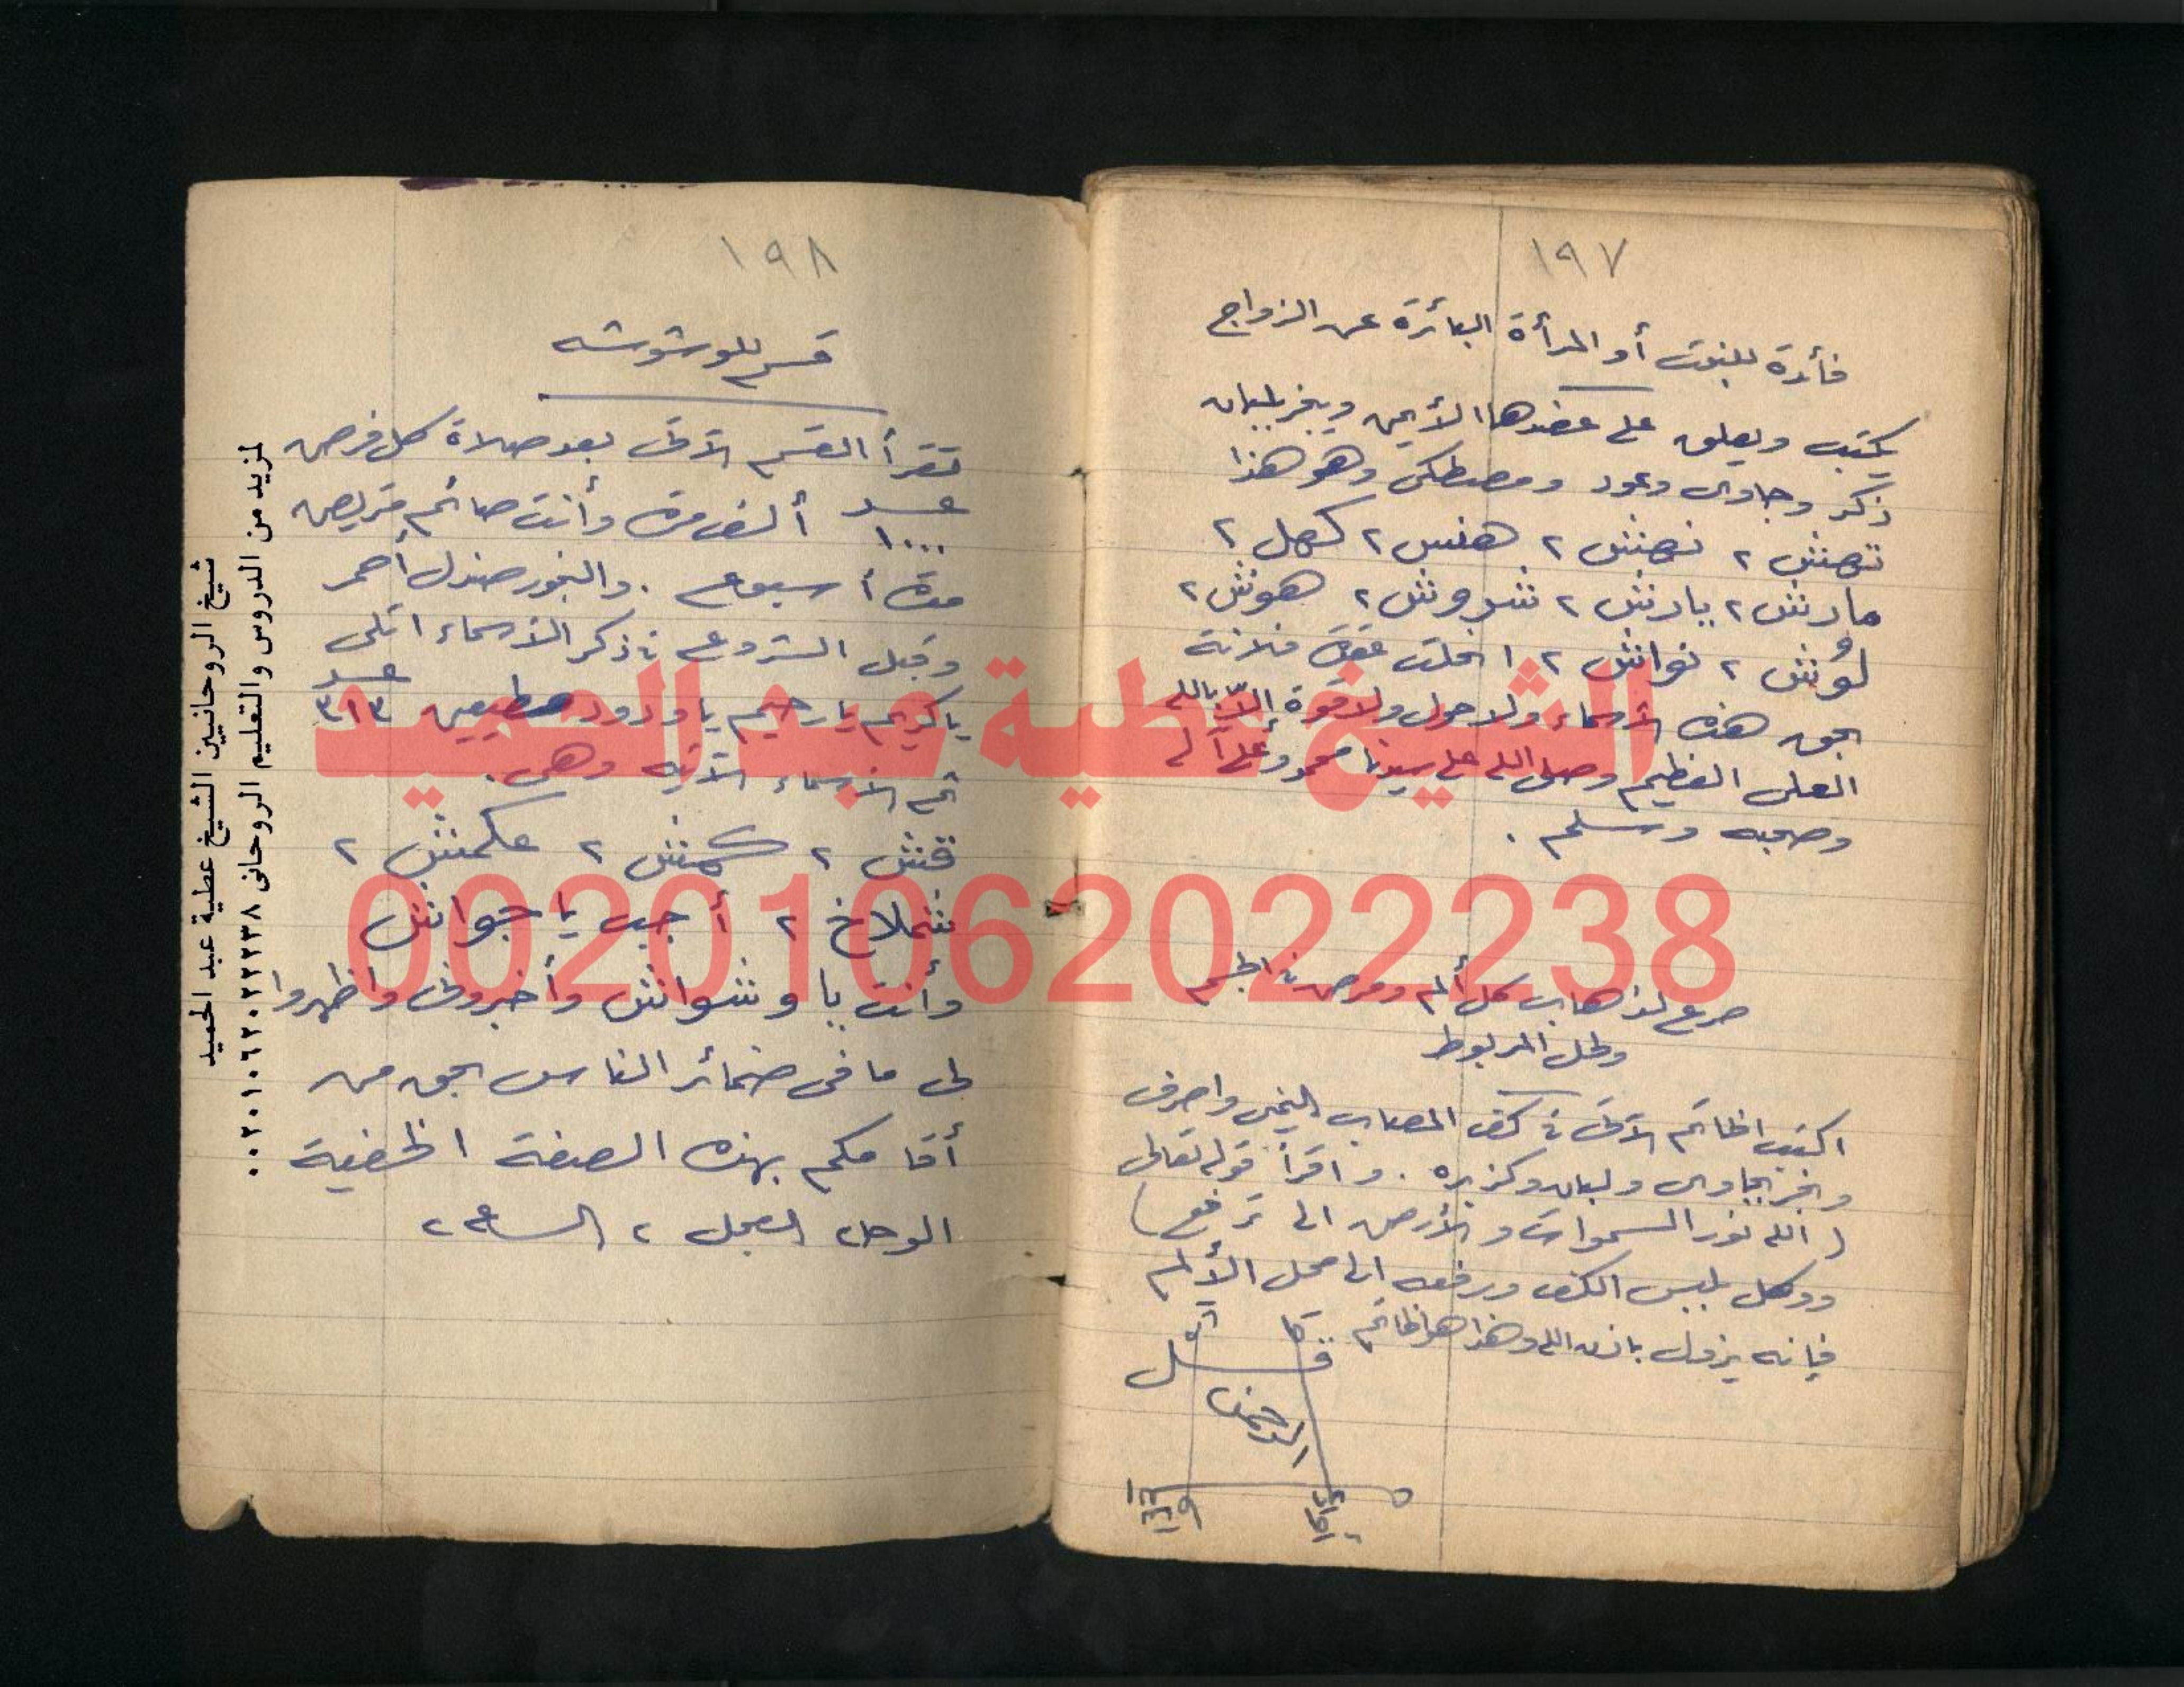 ١٩٧
فائدة للبنت أو المرأة البائرة عن الزواج
يكتب ويعلق على عضدها الأيمن ويبخر بلبان
ذكر وجاوى وعود ومصطكى وهو هذا
تهنش ٢ نهنش ٢ هنش ٢ كهل ٢
مارش ٢ يارش ٢ شروش ٢ هوش ٢
لوش ٢ نواش ٢ انحلت عقدة فلانة
بحق هذه الأسماء ولا حول ولا قوة إلا بالله
العلى العظيم وصلى الله على سيدنا محمد وعلى آله
وصحبه وسلم .
صرع لذهاب كل ألم ومرض فى الجسم
ولحل المربوط
اكتب الخاتم الآتى فى كف المصاب اليمنى واصرف
وبخر بجاوى ولبان وكزبره . واقرأ قوله تعالى
( الله نور السموات والأرض الى ترفع )
ووكل بلبس الكف ورفعه الى محل الألم
فإنه يزول باذن الله وهذا هو الخاتم
الرحمن
١٩٨
قسم للوشوشه
تقرأ القسم الآتى بعد صلاة كل فرض
عدد ١٠٠٠ ألف مرة وأنت صائم بتريض
مدة أسبوع . والبخور صندل أحمر
وقبل الشروع فى ذكر الأسماء اتلى
يا كريم يا رحيم يا ودود عدد ٣١٣
ثم الأسماء الآتيه وهى .
قنش ٢ كمنش ٢ عكمنش ٢
شملاخ ٢ أجب يا جوانش
وأنت يا وشوانش وأخبرونى واظهروا
لى ما فى ضمائر الناس بحق من
أقامكم بهذه الصفة الخفية
الوحا العجل ٢ الساعه ٢
لمزيد من الدروس والتعليم الروحانى ٠٠٢٠١٠٦٢٠٢٢٢٣٨
شيخ الروحانيين الشيخ عطية عبد الحميد
الشيخ عطية عبد الحميد
00201062022238